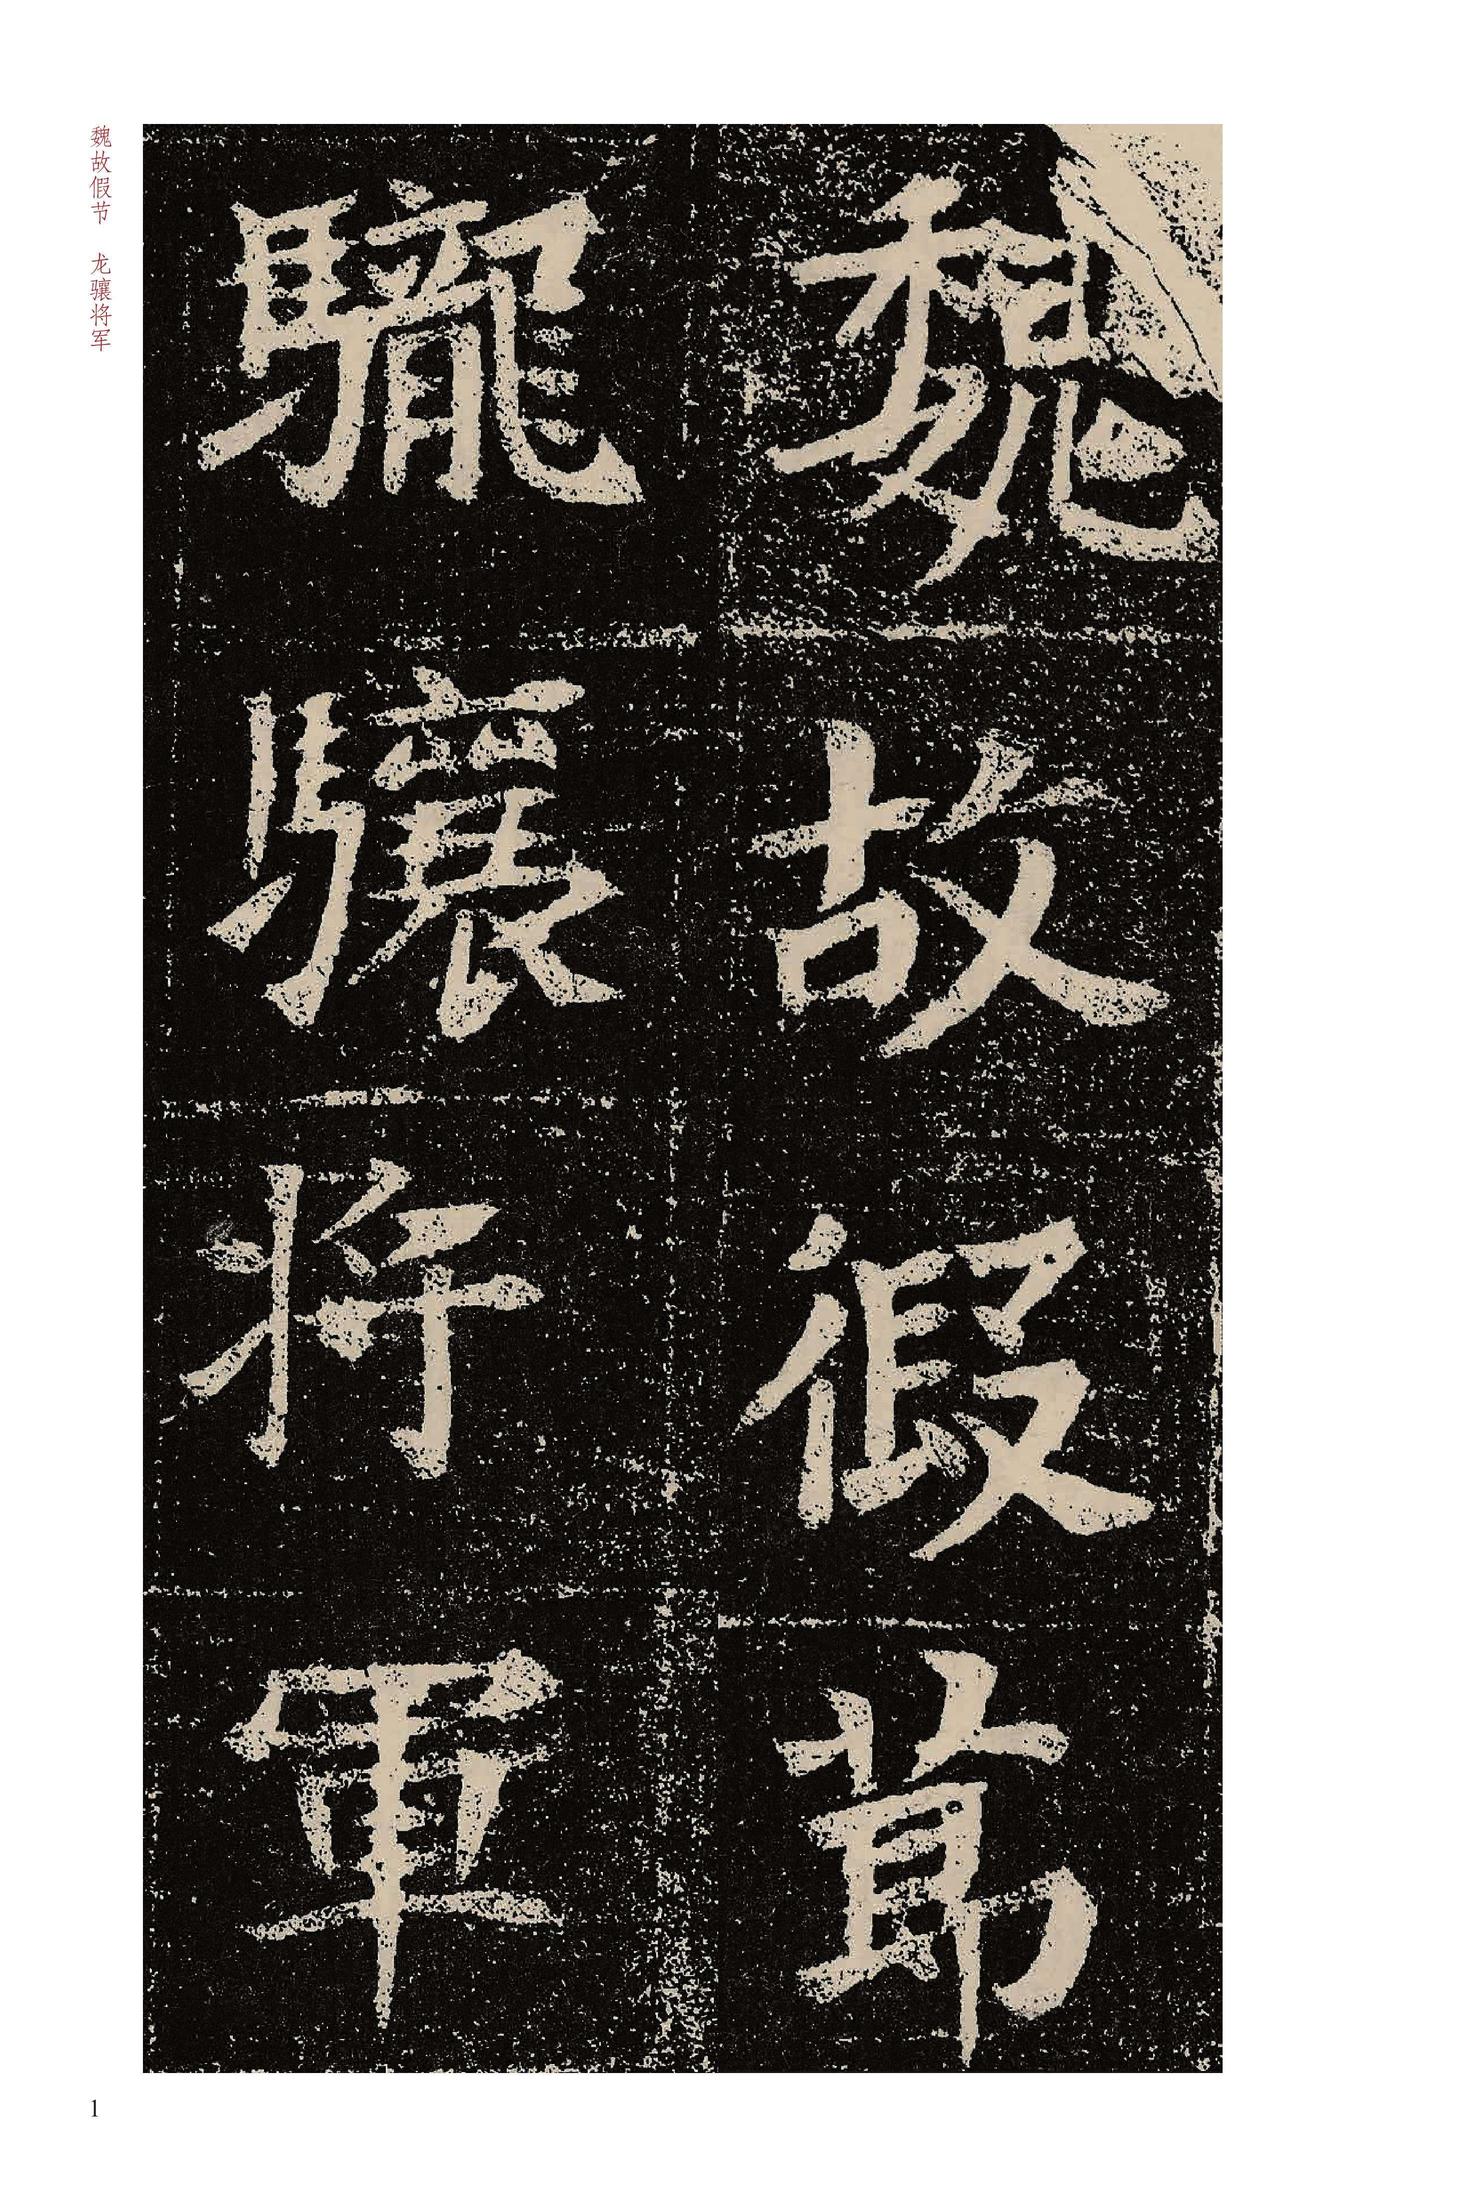 魏故假節
驡驤將軍
魏故假节 龙骧将军
1